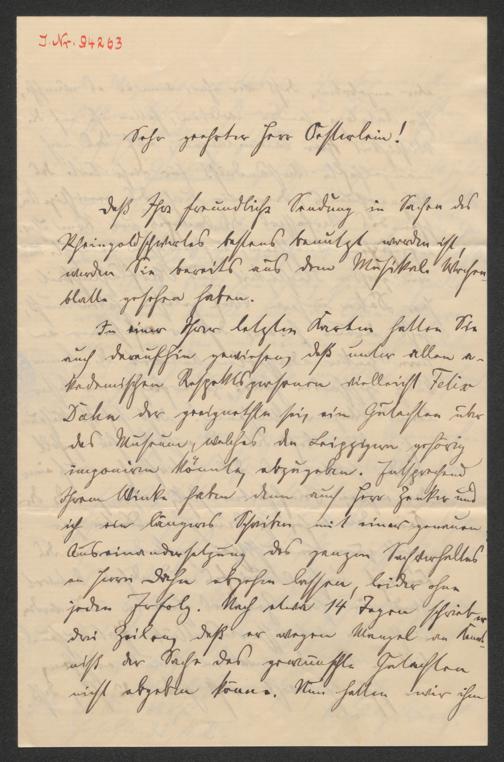 J. Nr. 94263
Sehr geehrter Herr Oesterlein!
Daß Ihre freundliche Sendung in Sachen des
Rheingoldschwertes bestens benutzt worden ist,
werden Sie bereits aus dem Musikal. Wochen-
blatte gesehen haben.
In einer Ihrer letzten Karten hatten Sie
auch daraufhin gewiesen, daß unter allen a-
kademischen Respektspersonen vielleicht Felix
Dahn der geeignetste sei, ein Gutachten über
das Museum, welches den Leipzigern gehörig
imponiren könnte, abzugeben. Entsprechend
Ihrem Winke haben denn auch Herr Zenker und
ich ein längeres Schreiben mit einer genauen
Auseinandersetzung des ganzen Sachverhaltes
an Herrn Dahn abgehen lassen, leider ohne
jeden Erfolg. Nach etwa 14 Tagen schrieb er
drei Zeilen, daß er wegen Mangel an Kennt-
niß der Sache das gewünschte Gutachten
nicht abgeben könne. Nun hatten wir ihm